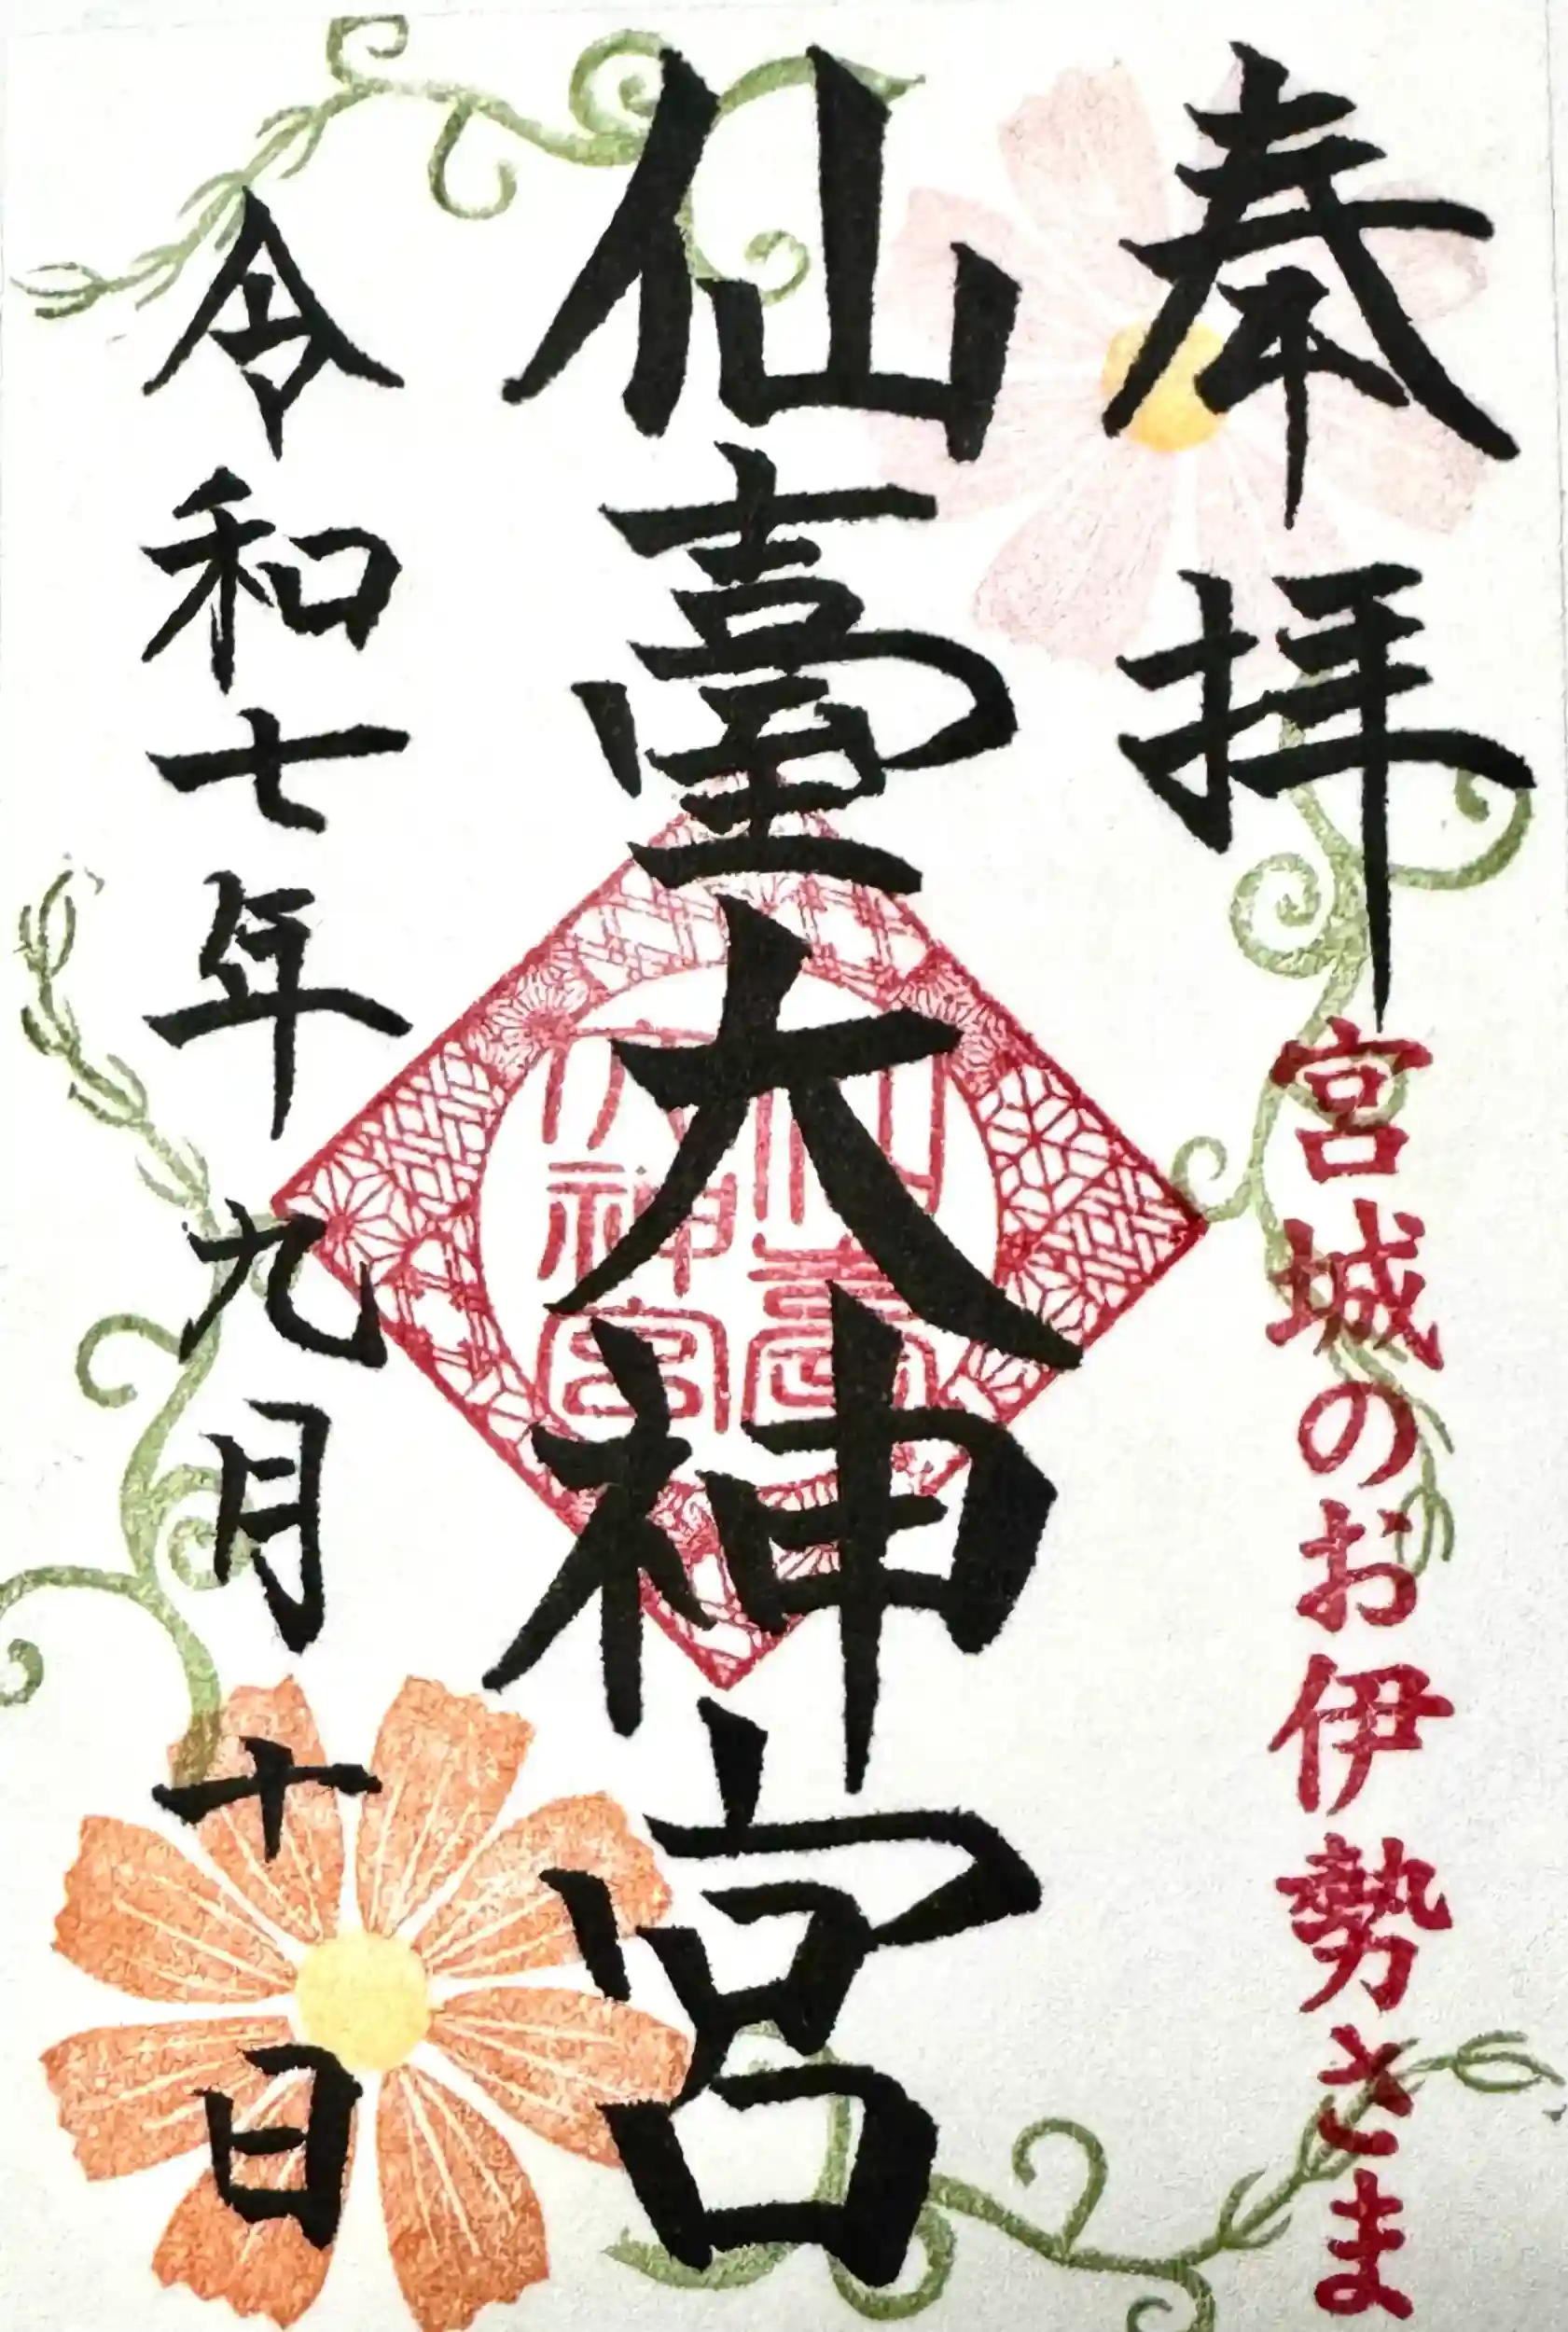 奉拝
宮城のお伊勢さま
仙臺大神宮
仙臺
大神宮
令和七年九月十日